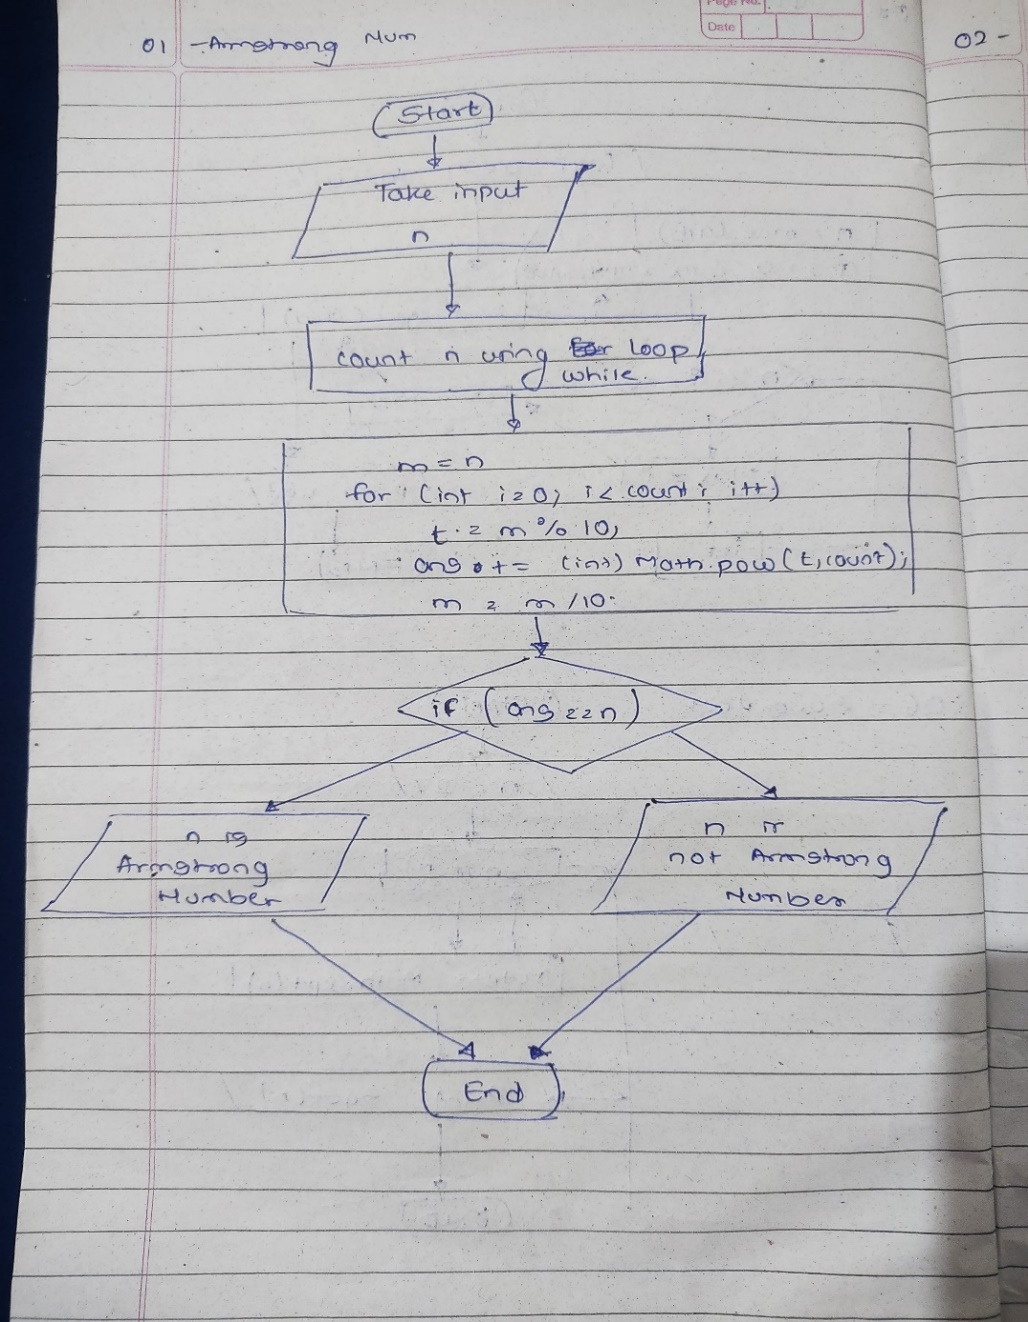 Page No.
Date
01 - Armstrong Num
02 -
Start
Take input
n
count n using loop
while.
m = n
for (int i=0; i< count; i++)
t = m % 10;
ans += (int) Math.pow(t,count);
m = m /10.
if (ans ==n)
n is
Armstrong
Number
n is
not Armstrong
Number
End